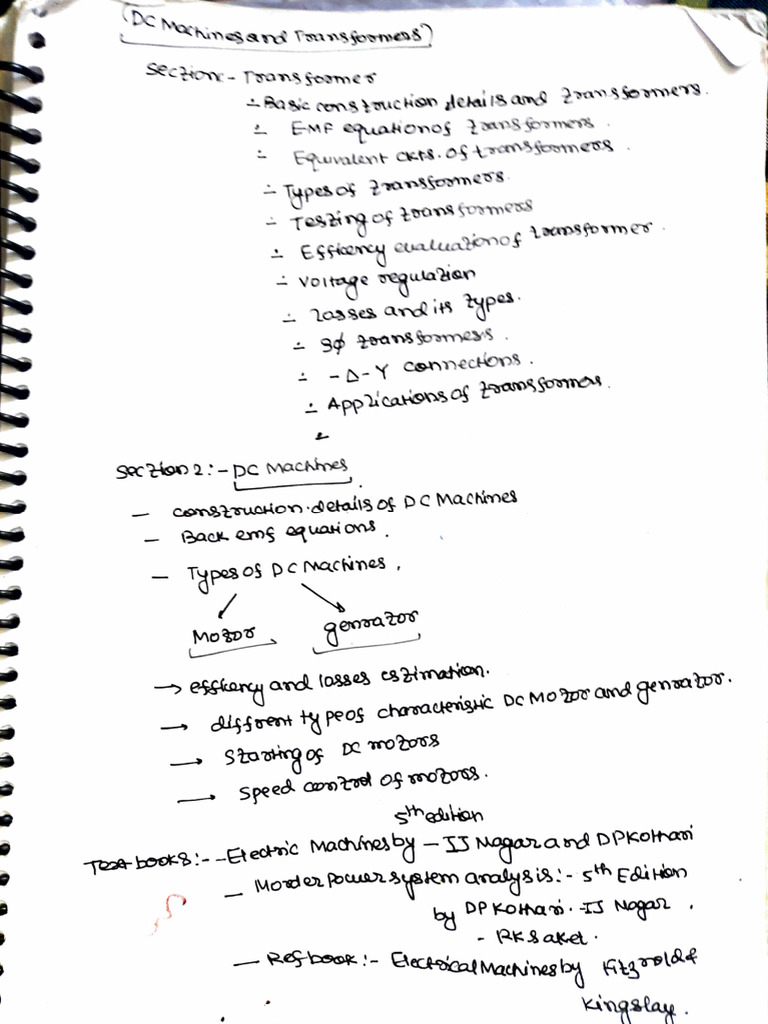 (DC Machines and Transformers)
Section:- Transformer
÷ Basic construction details and transformers.
÷ EMF equation of transformers.
÷ Equivalent ckts. of transformers.
÷ Types of transformers.
÷ Testing of transformers
÷ Efficency evaluation of transformer.
÷ Voltage regulation
÷ losses and its types.
÷ 3φ transformers.
÷ -Δ-Y connections.
÷ Applications of transformers.
Section 2:- DC Machines
- construction.details of DC Machines
- Back emf equations.
- Types of DC Machines.
Motor genrator
→ efficency and losses estimation.
→ diffrent type of characteristic DC Motor and genrator.
→ Starting of DC motors
→ Speed control of motors.
5th edition
Text books:- - Electric Machines by - IJ Nagar and DP Kothari
- Morder power system analysis:- 5th Edition
by DP Kothari. IJ Nagar.
- RK Saket.
- Ref book:- Electrical Machines by Fitzrold &
Kingslay.